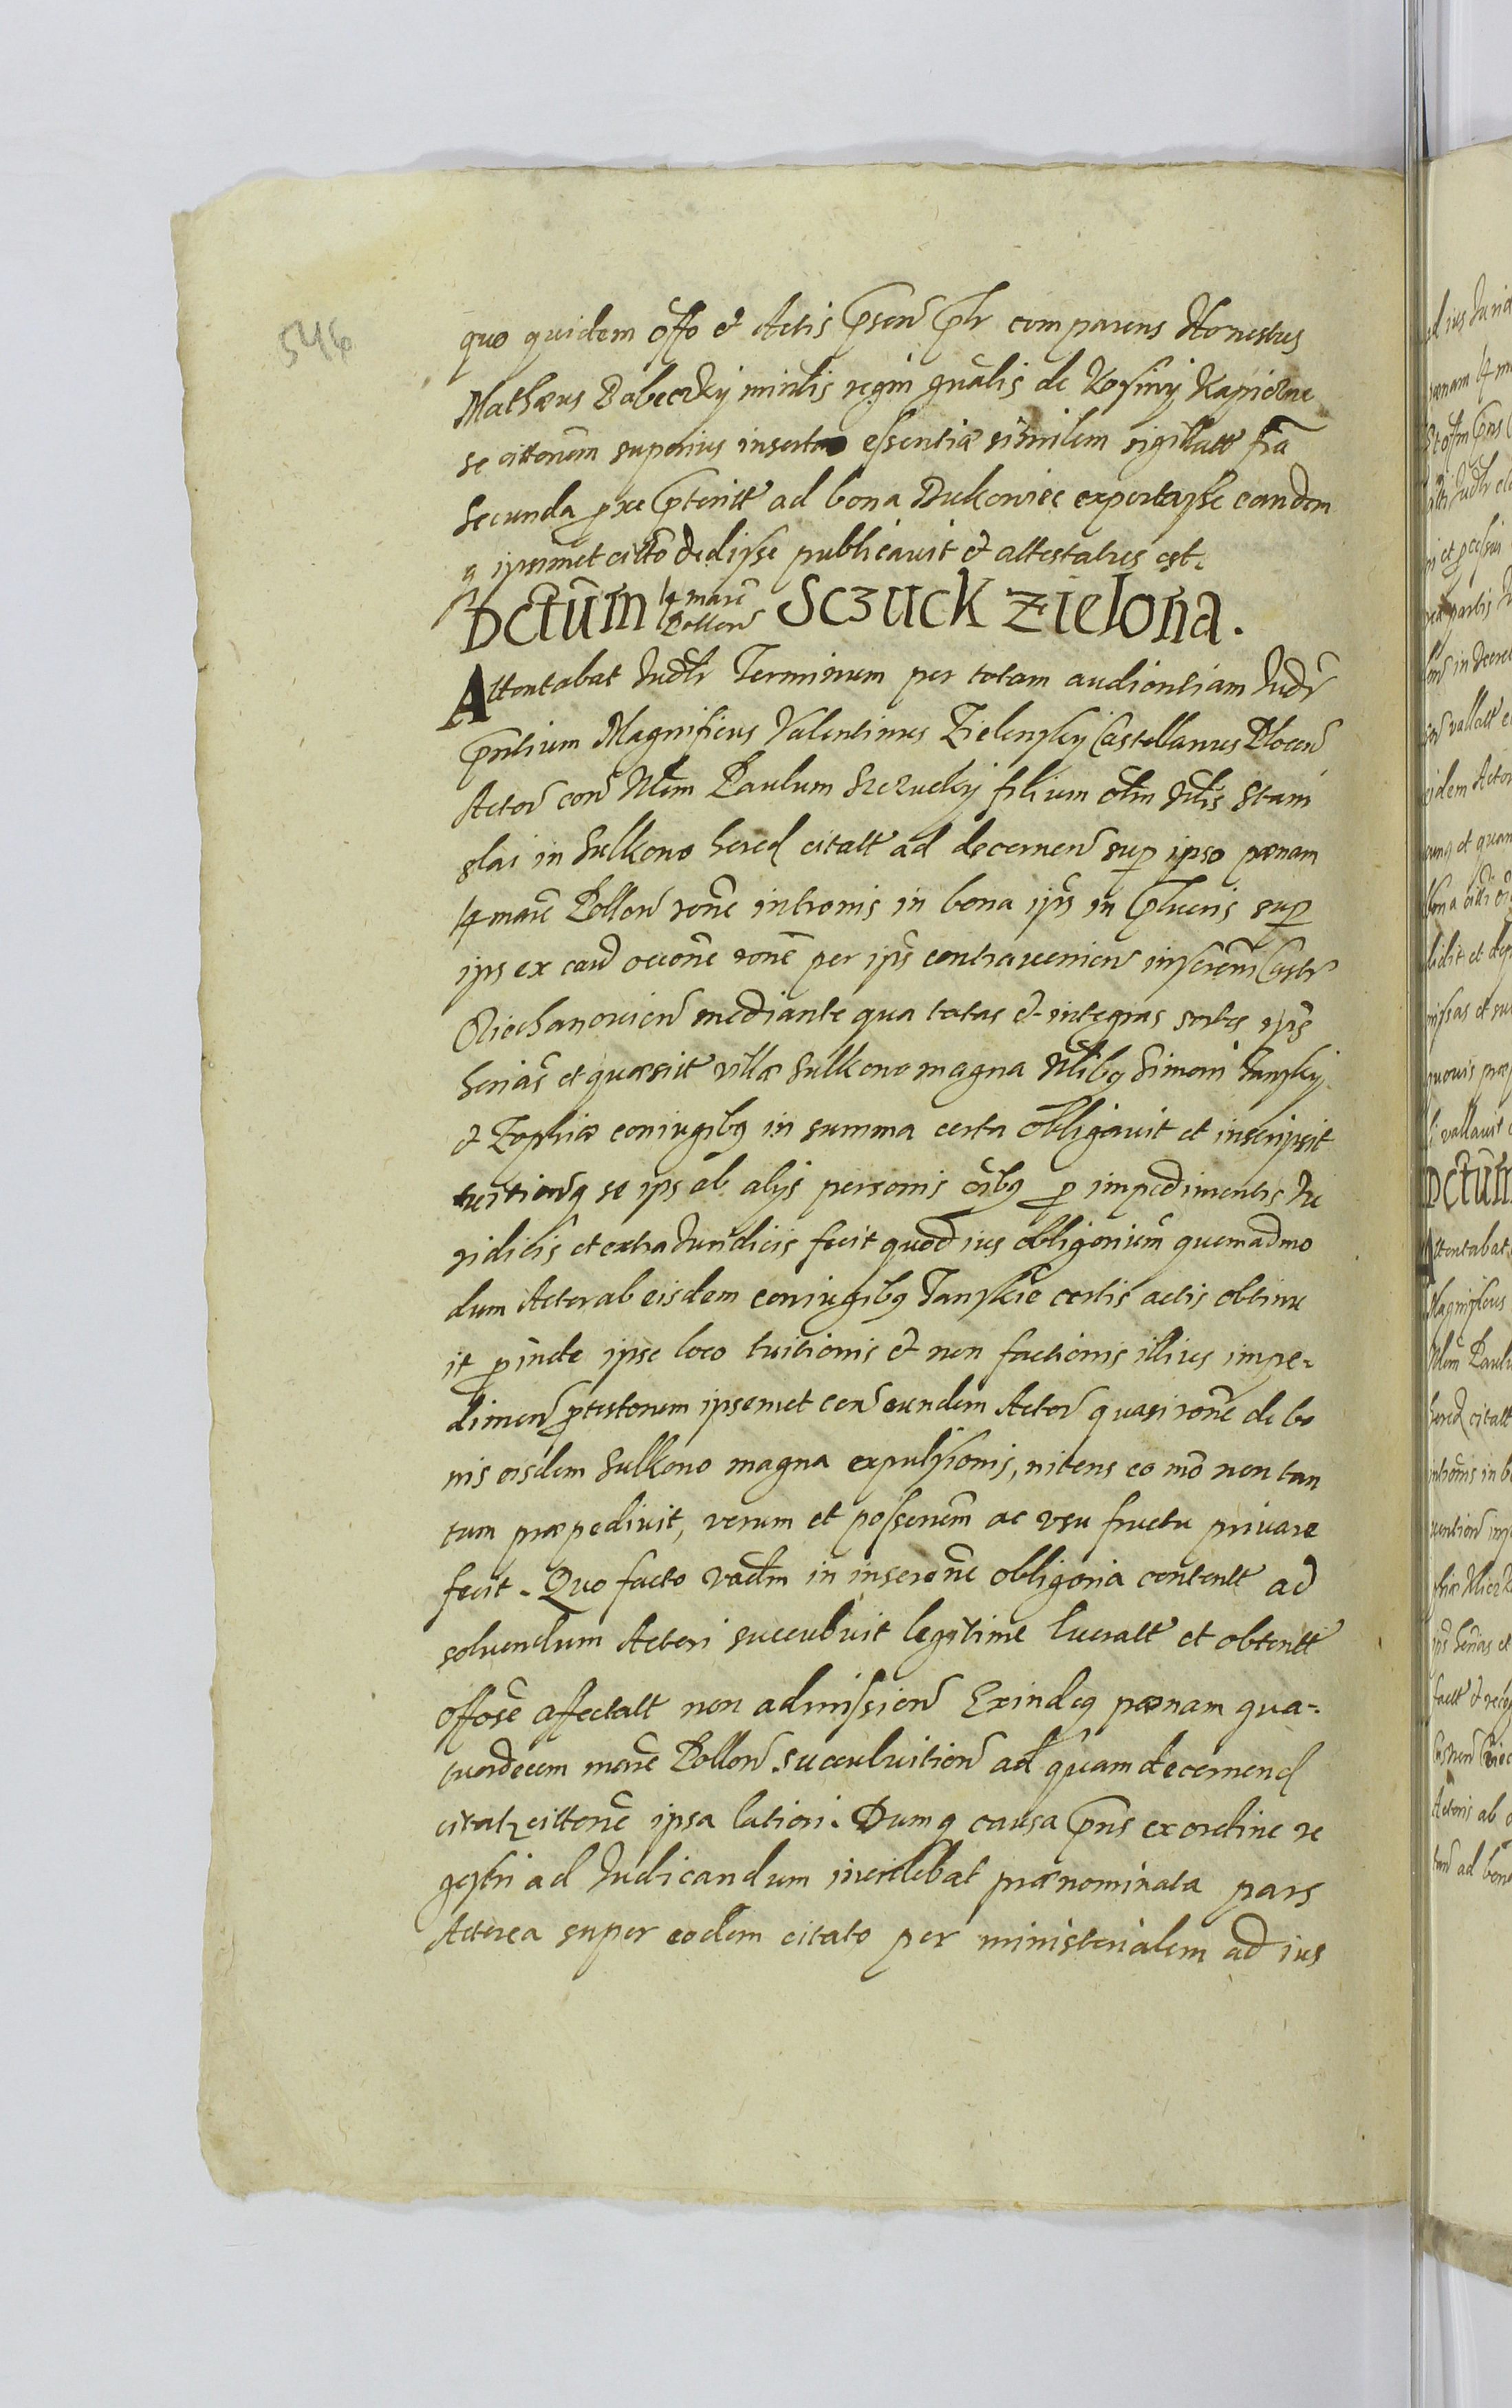 546
quo quidem offo et Actis p̃sen p̃lr comparens Honestus
Mathæus Dabeczky minlis regni gn̄alis de Kosiny Kapiczne
se citton̄em superius insertæ essentiæ similem sigillatt fr̄a
secunda pxe p̃teritt ad bona Dukowiec exportasse eandem
q ipsimet citt̄o dedisse publicavit et attestatus est.
Dctūm 14 marc̄ Pollon̄ Sczuck Zielona.
Attentabat Iudlr Terminum per totam audientiam Iudr̄
p̃ntium Magnificus Valentinus Zielensky Castellanus Plocen̄
Actor̄ con̄ Nlem Paulum Sczucky filium olm̄ Nlis Stani
slai in Sulkono hered citatt ad decernen̄ sup ipso pœnam
14 marc̄ Pollon̄ ron̄e intromis in bona ips̄ in p̃lucris sup
ips ex cau̅ occon̄e ron̄e per ips̄ contravenien̄ inscron̄i Castr̄
Ciechanovien̄ mediante qua totas et integras sortes ips̄
herias̄ et quæsitt villæ Sulkono magna Nlibq Simoni Iansky
et Zophiæ coniugibq in summa certa obligavit et inscripsit
tuitionq se ips ab alijs personis oībq p impedimentis Iu
ridicis et extraIuridicis fecit quod ius obligorium̄ quemadmo
dum Actor ab eisdem coniugibq Ianskie certis actis obtinu
it pinde ipse loco tuitionis et non factionis illius impe-
dimen̄ ptestonem ipsemet con̄ eundem Actor̄ quasi ron̄e de bo
nis eisdem Sulkono magna expulsionis, nitens eo mo̅ non tan
tum præpedivit, verum et possenem̄ ac usu fructu privare
fecit. Quo facto vadm̄ in inscron̄e obligoria contentt ad
solvendum Actori succubuit legitime lucratt et obtentt
offose̅ affectatt non admission̄ Exindeq pœnam qua-
tuordecem marc̄ Pollon̄ succubuition̄ ad quam decernend
citatz citton̄e ipsa latiori. Dumq causa p̃ns ex ordine re
gestri ad Iudicandum incidebat prænominata pars
Actorea super eodem citato per ministerialem ad ius